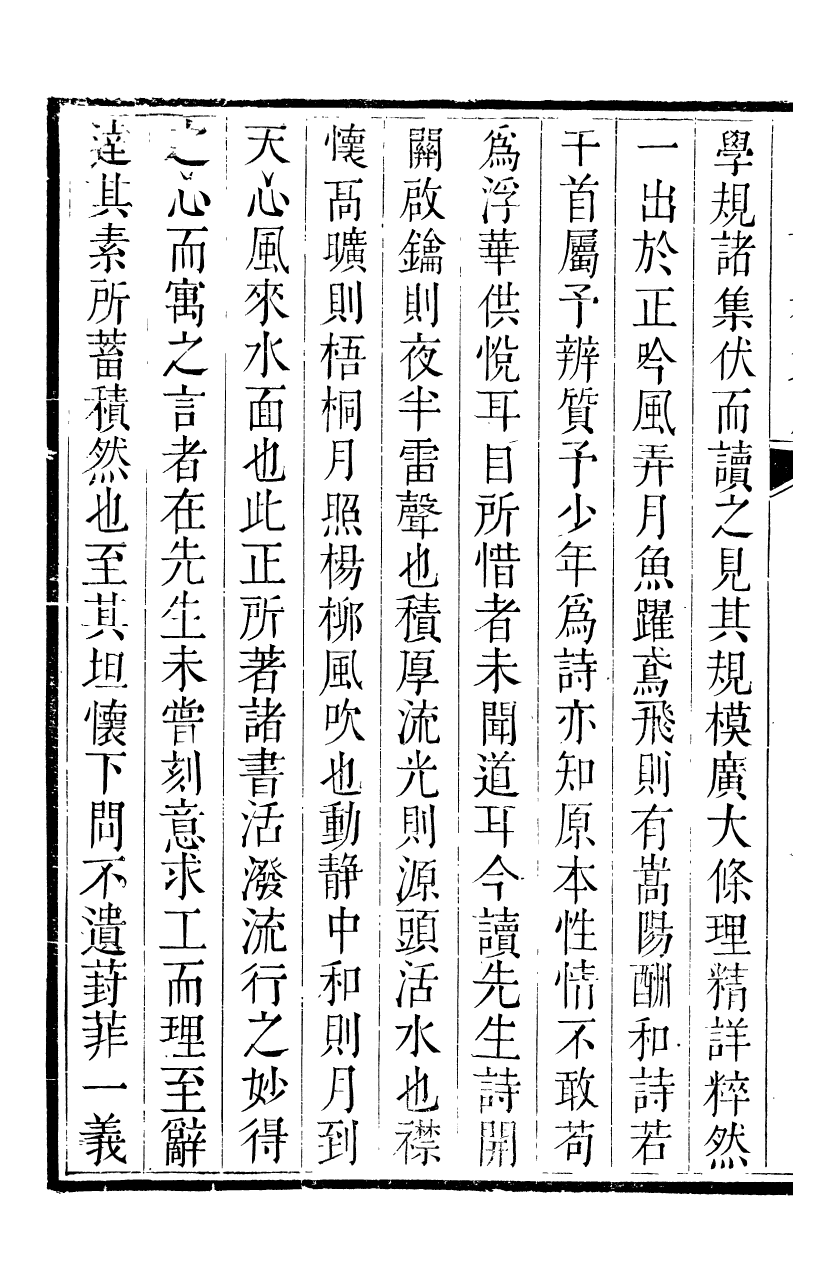 學規諸集伏而讀之見其規模廣大條理精詳粹然
一出於正吟風弄月魚躍鳶飛則有嵩陽酬和詩若
干首屬予辨質予少年爲詩亦知原本性情不敢苟
爲浮華供悅耳目所惜者未聞道耳今讀先生詩開
關啟鑰則夜半雷聲也積厚流光則源頭活水也襟
懷高曠則梧桐月照楊柳風吹也動靜中和則月到
天心風來水面也此正所著諸書活潑流行之妙得
之心而寓之言者在先生未嘗刻意求工而理至辭
達其素所蓄積然也至其坦懷下問不遺葑菲一義